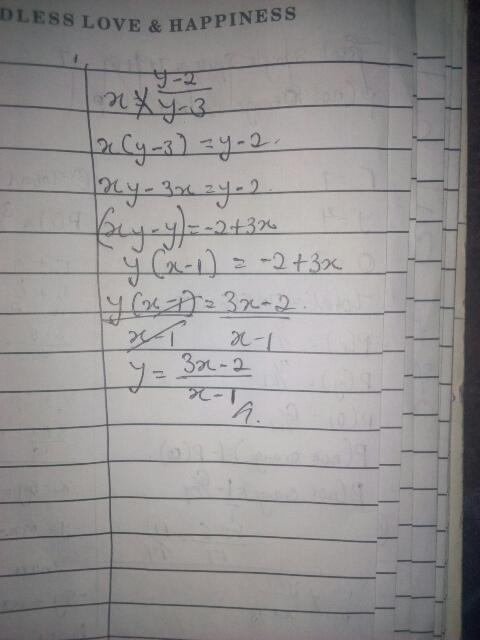 DLESS LOVE & HAPPINESS
x = y-2 / y-3
x(y-3) = y-2.
xy - 3x = y-2.
(xy-y) = -2+3x
y(x-1) = -2+3x
y(x-1) = 3x-2.
x-1 x-1
y = 3x-2
x-1